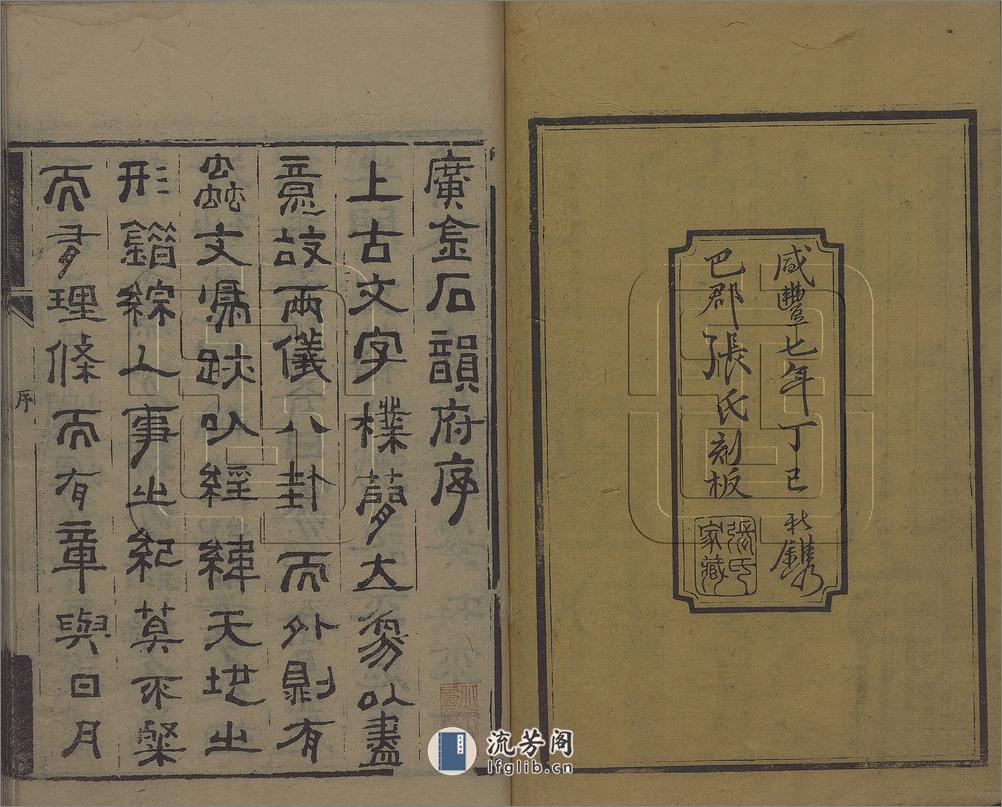 咸豐七年丁巳秋鐫
巴郡張氏刻板
張氏家藏
廣金石韻府序
上古文字樸茂大篆以盡
意故兩儀八卦而外則有
蟲文鳥跡以經緯天地之
形錯綜人事之紀莫不粲
而有理條而有章與日月
序
流芳阁
lfglib.cn